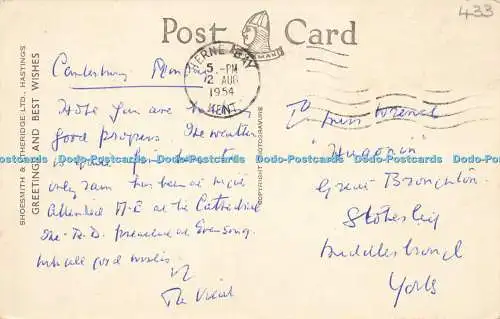 Post Card
433
NORMAN
HERNE BAY
5 - PM
2 AUG
1954
KENT
SHOESMITH & ETHERIDGE LTD., HASTINGS
GREETINGS AND BEST WISHES
COPYRIGHT PHOTOGRAVURE
Canterbury Monday
Hope you are making
good progress. The weather
is quite fine but
only rain has been at night
Attended at the Cathedral
The preached at Evensong.
With all good wishes.
The Vicar
To Miss
"Hugonin"
Great Broughton
Stokesley
Middlesbrough
Yorks
Dodo-Postcards Dodo-Postcards Dodo-Postcards Dodo-Postcards Dodo-Postcards Dodo-Postcards